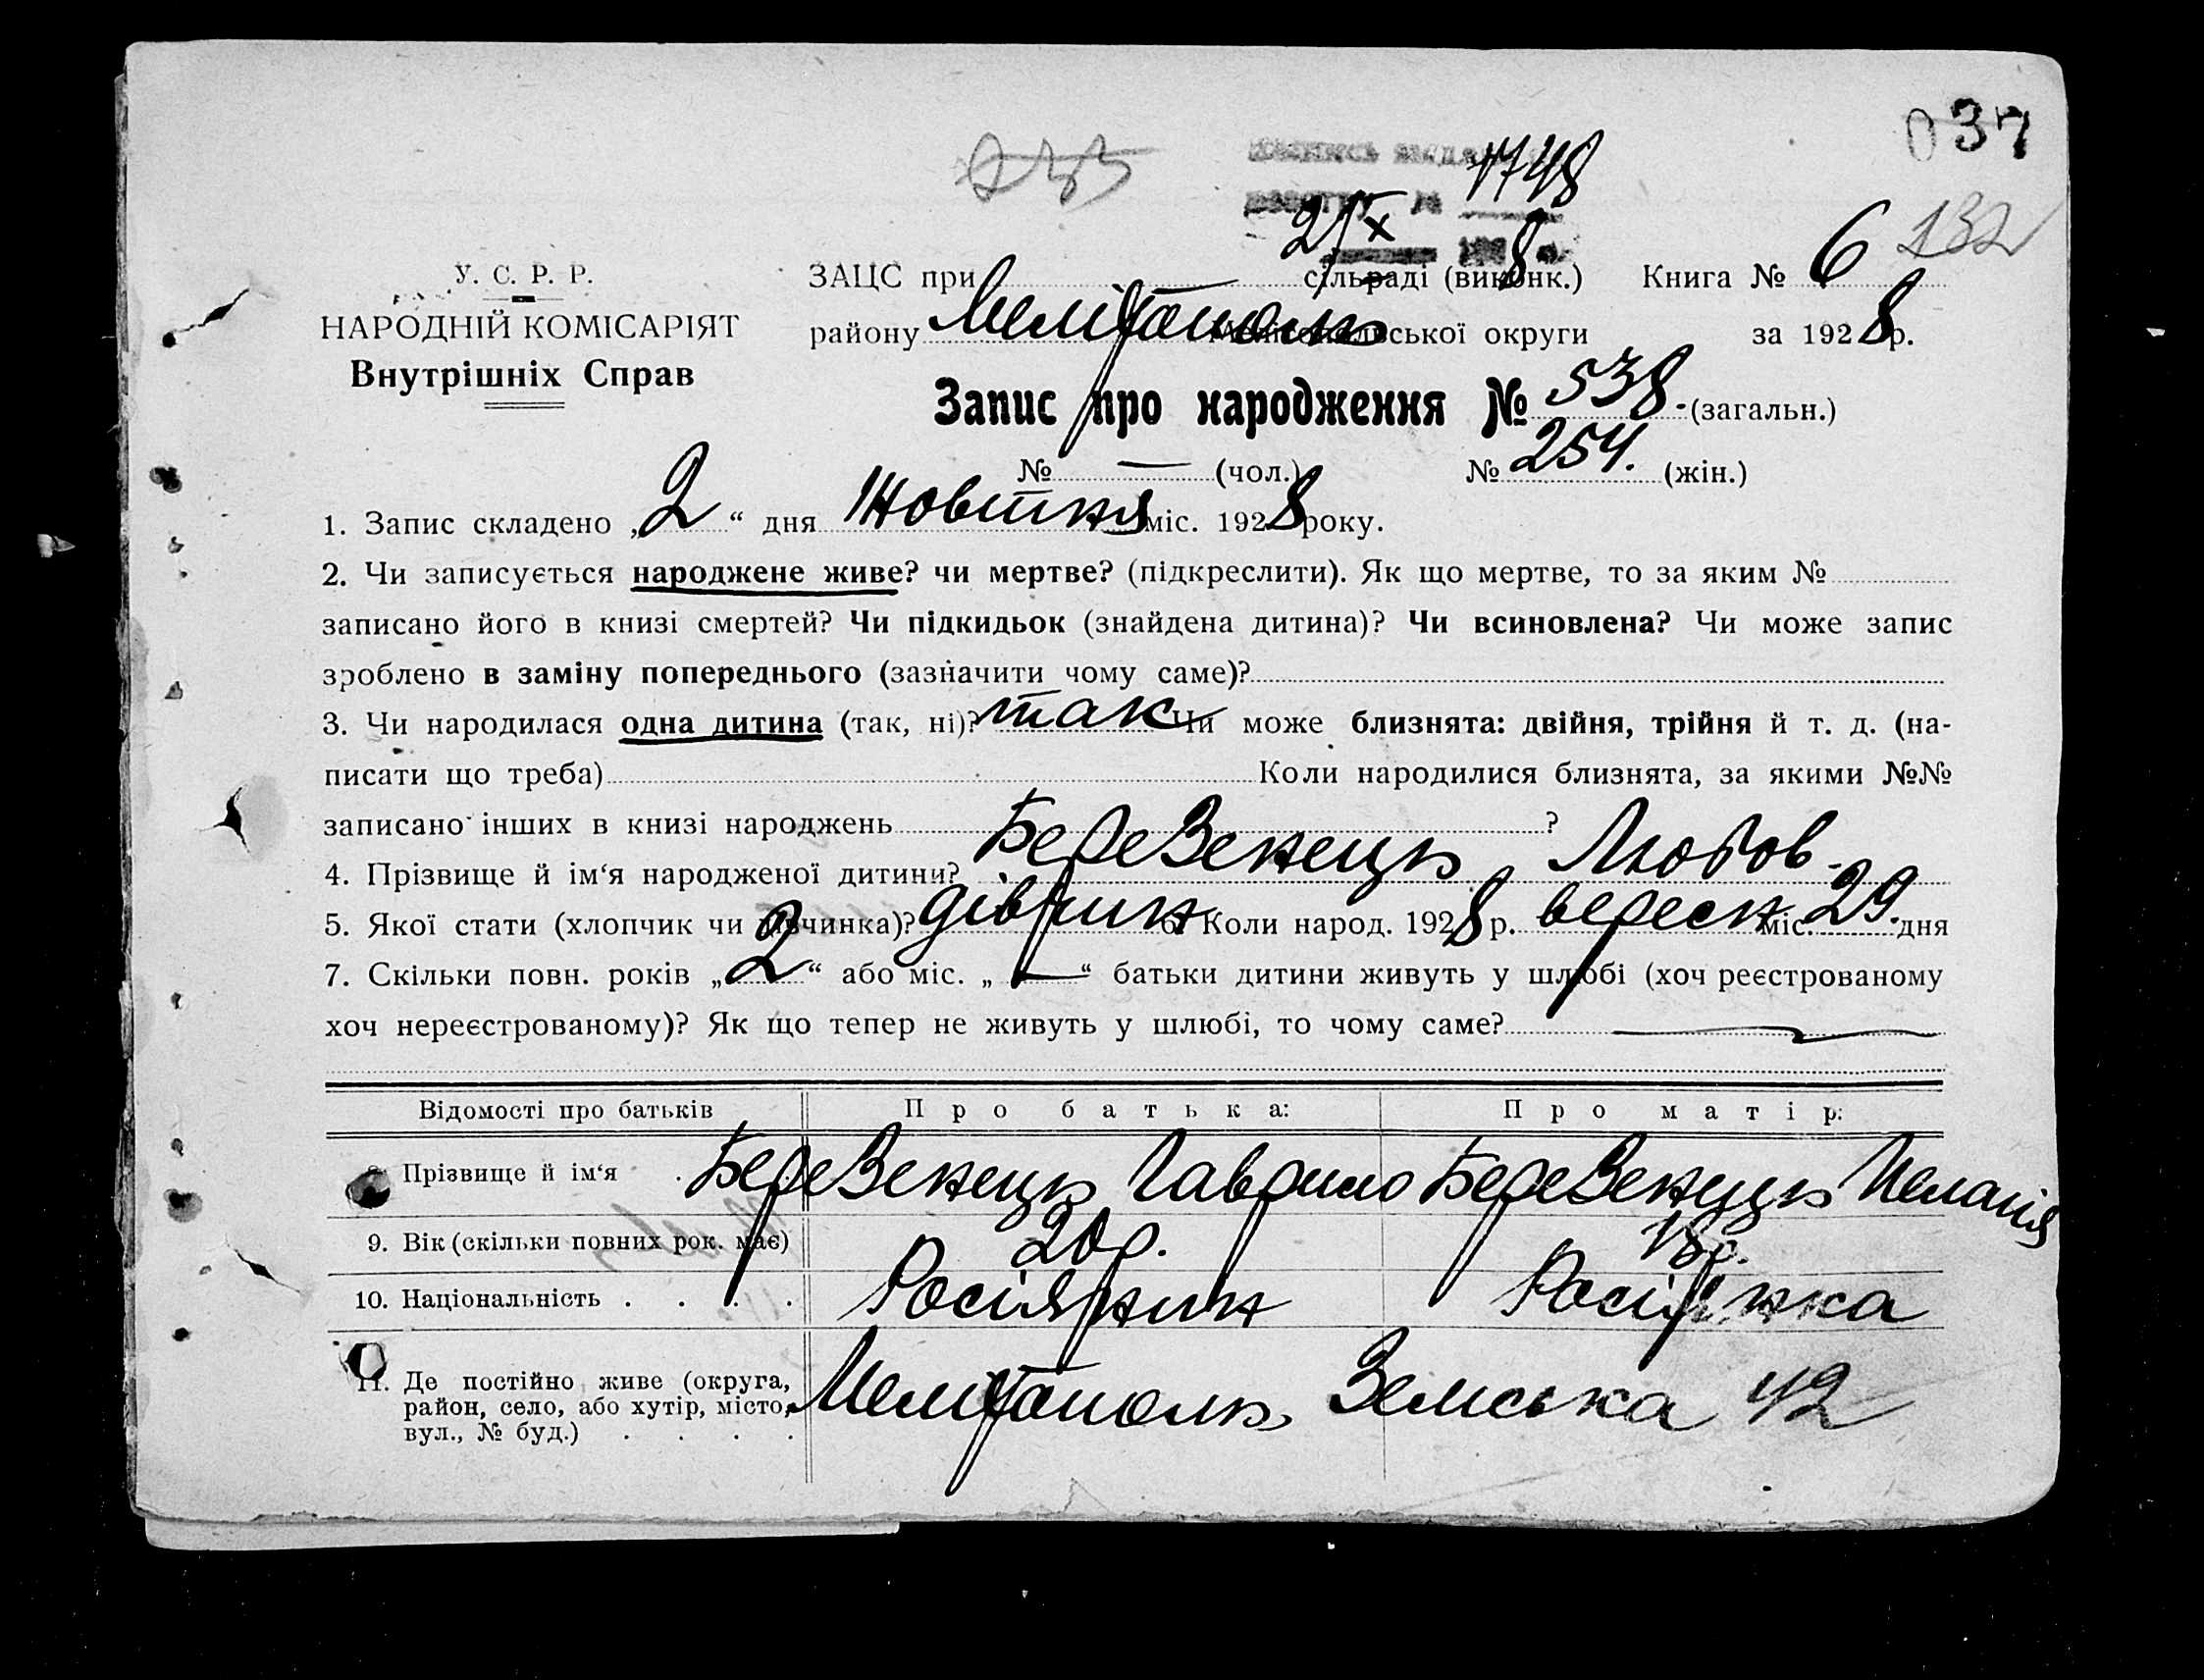 037
233
1748
2/X 8
132
У. С. Р. Р.
НАРОДНІЙ КОМІСАРІЯТ
Внутрішніх Справ
ЗАЦС при сільраді (виконк.) Книга № 6
району Мелітополь Мелітопольської округи за 1928 р.
Запис про народження № 538. (загальн.)
№ — (чол.) № 254. (жін.)
1. Запис складено „2“ дня Жовтня міс. 1928 року.
2. Чи записується народжене живе? чи мертве? (підкреслити). Як що мертве, то за яким №
записано його в книзі смертей? Чи підкидьок (знайдена дитина)? Чи всиновлена? Чи може запис
зроблено в заміну попереднього (зазначити чому саме)?
3. Чи народилася одна дитина (так, ні)? так Чи може близнята: двійня, трійня й т. д. (на-
писати що треба) Коли народилися близнята, за якими №№
записано інших в книзі народжень ?
4. Прізвище й ім‘я народженої дитини? Березенець Любов
5. Якої стати (хлопчик чи дівчинка)? дівчин 6. Коли народ. 1928 р. вересн міс. 29. дня
7. Скільки повн. років „2“ або міс. „—“ батьки дитини живуть у шлюбі (хоч реєстрованому
хоч нереєстрованому)? Як що тепер не живуть у шлюбі, то чому саме? —
Відомості про батьків Про батька: Про матір:
Прізвище й ім‘я Березенець Гаврило Березенець Пелагія
9. Вік (скільки повних рок. має) 20 р. 18 р.
10. Національність . . . . Росіянин Росіянка
11. Де постійно живе (округа,
район, село, або хутір, місто, Мелітополь Земська 42
вул., № буд.) . . . .